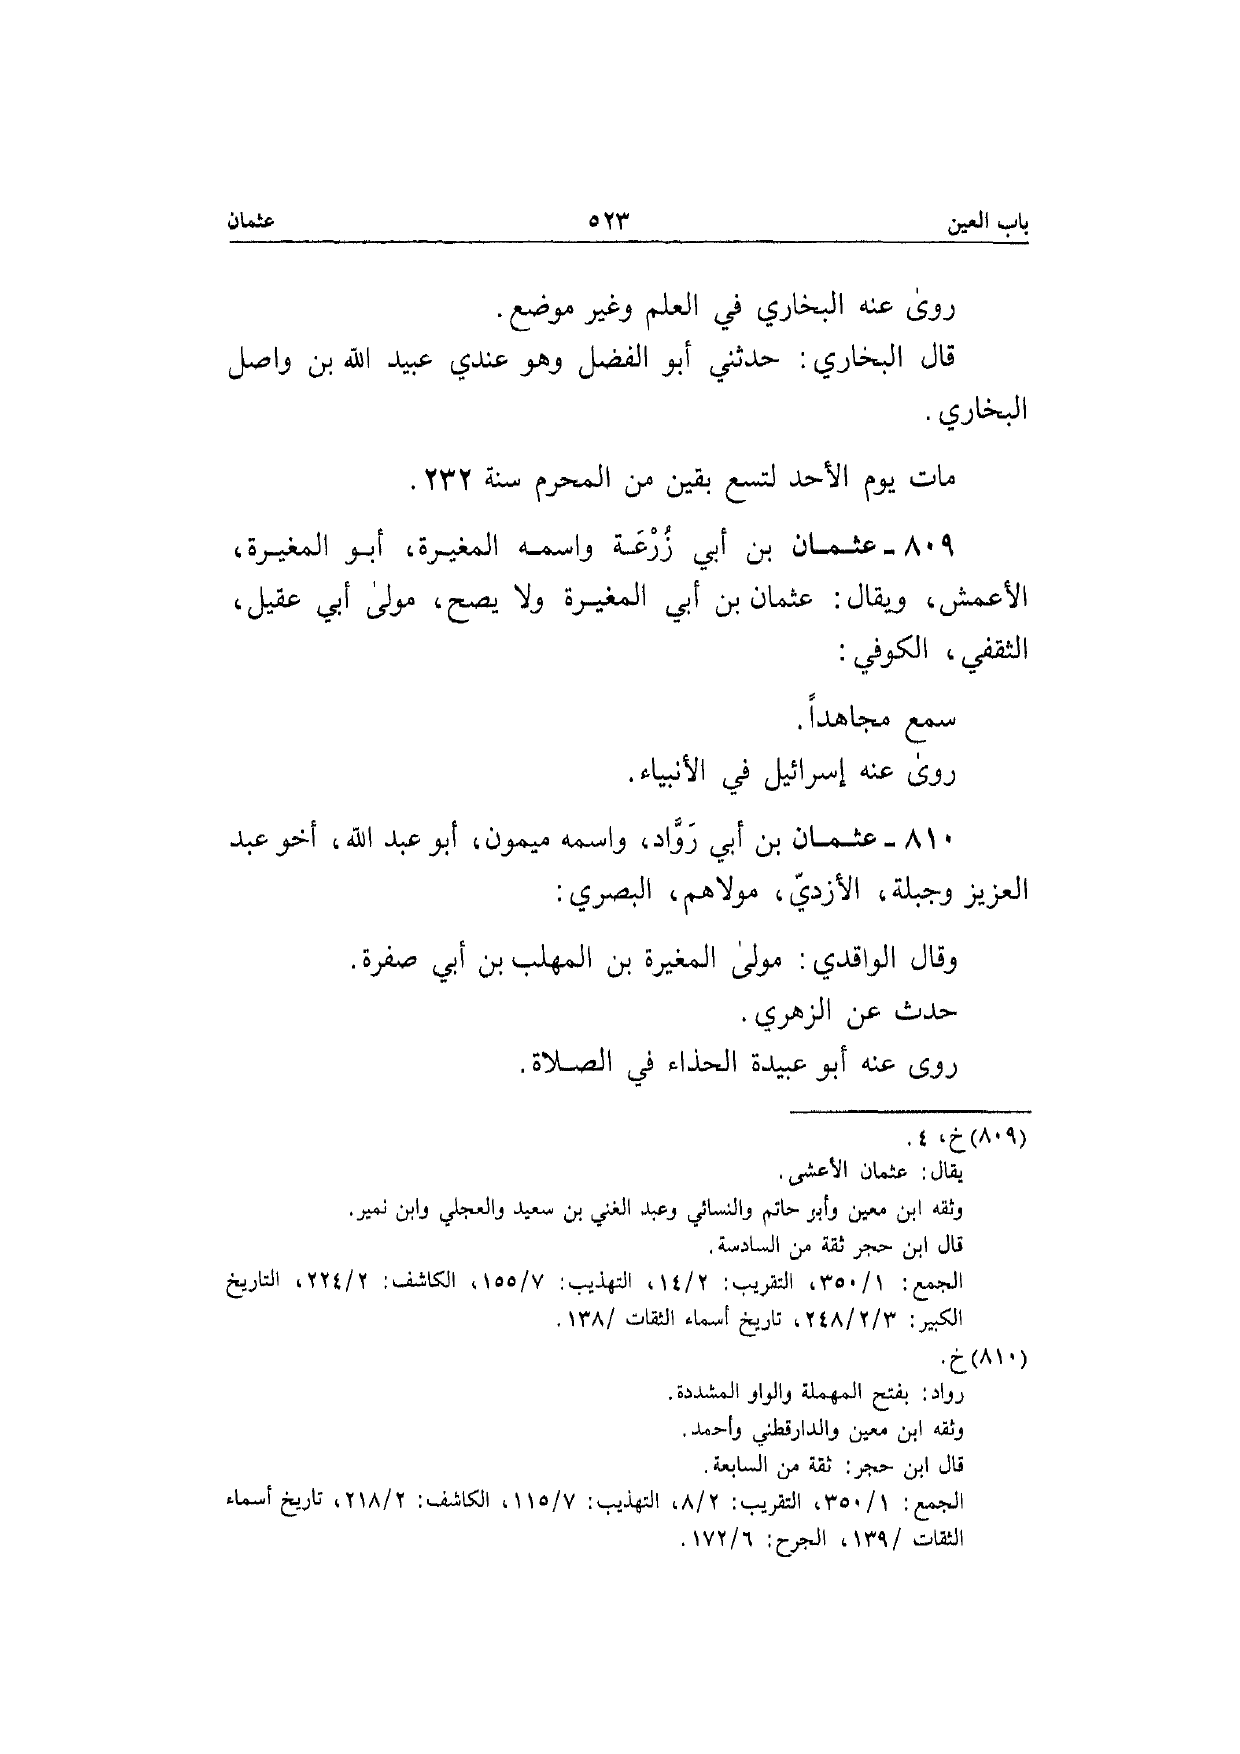 باب العين ٥٢٣ عثمان
روىٰ عنه البخاري في العلم وغير موضع.
قال البخاري: حدثني أبو الفضل وهو عندي عبيد الله بن واصل
البخاري.
مات يوم الأحد لتسع بقين من المحرم سنة ٢٣٢.
٨٠٩ ـ عثـمـان بن أبي زُرْعَـة واسمـه المغيـرة، أبـو المغيـرة،
الأعمش، ويقال: عثمان بن أبي المغيـرة ولا يصح، مولىٰ أبي عقيل،
الثقفي، الكوفي:
سمع مجاهداً.
روىٰ عنه إسرائيل في الأنبياء.
٨١٠ ـ عثـمـان بن أبي رَوَّاد، واسمه ميمون، أبو عبد الله، أخو عبد
العزيز وجبلة، الأزديّ، مولاهم، البصري:
وقال الواقدي: مولىٰ المغيرة بن المهلب بن أبي صفرة.
حدث عن الزهري.
روى عنه أبو عبيدة الحذاء في الصـلاة.
(٨٠٩) خ، ٤.
يقال: عثمان الأعشى.
وثقه ابن معين وأبر حاتم والنسائي وعبد الغني بن سعيد والعجلي وابن نمير.
قال ابن حجر ثقة من السادسة.
الجمع: ٣٥٠/١، التقريب: ١٤/٢، التهذيب: ١٥٥/٧، الكاشف: ٢٢٤/٢، التاريخ
الكبير: ٢٤٨/٢/٣، تاريخ أسماء الثقات /١٣٨.
(٨١٠) خ.
رواد: بفتح المهملة والواو المشددة.
وثقه ابن معين والدارقطني وأحمد.
قال ابن حجر: ثقة من السابعة.
الجمع: ٣٥٠/١، التقريب: ٨/٢، التهذيب: ١١٥/٧، الكاشف: ٢١٨/٢، تاريخ أسماء
الثقات /١٣٩، الجرح: ١٧٢/٦.